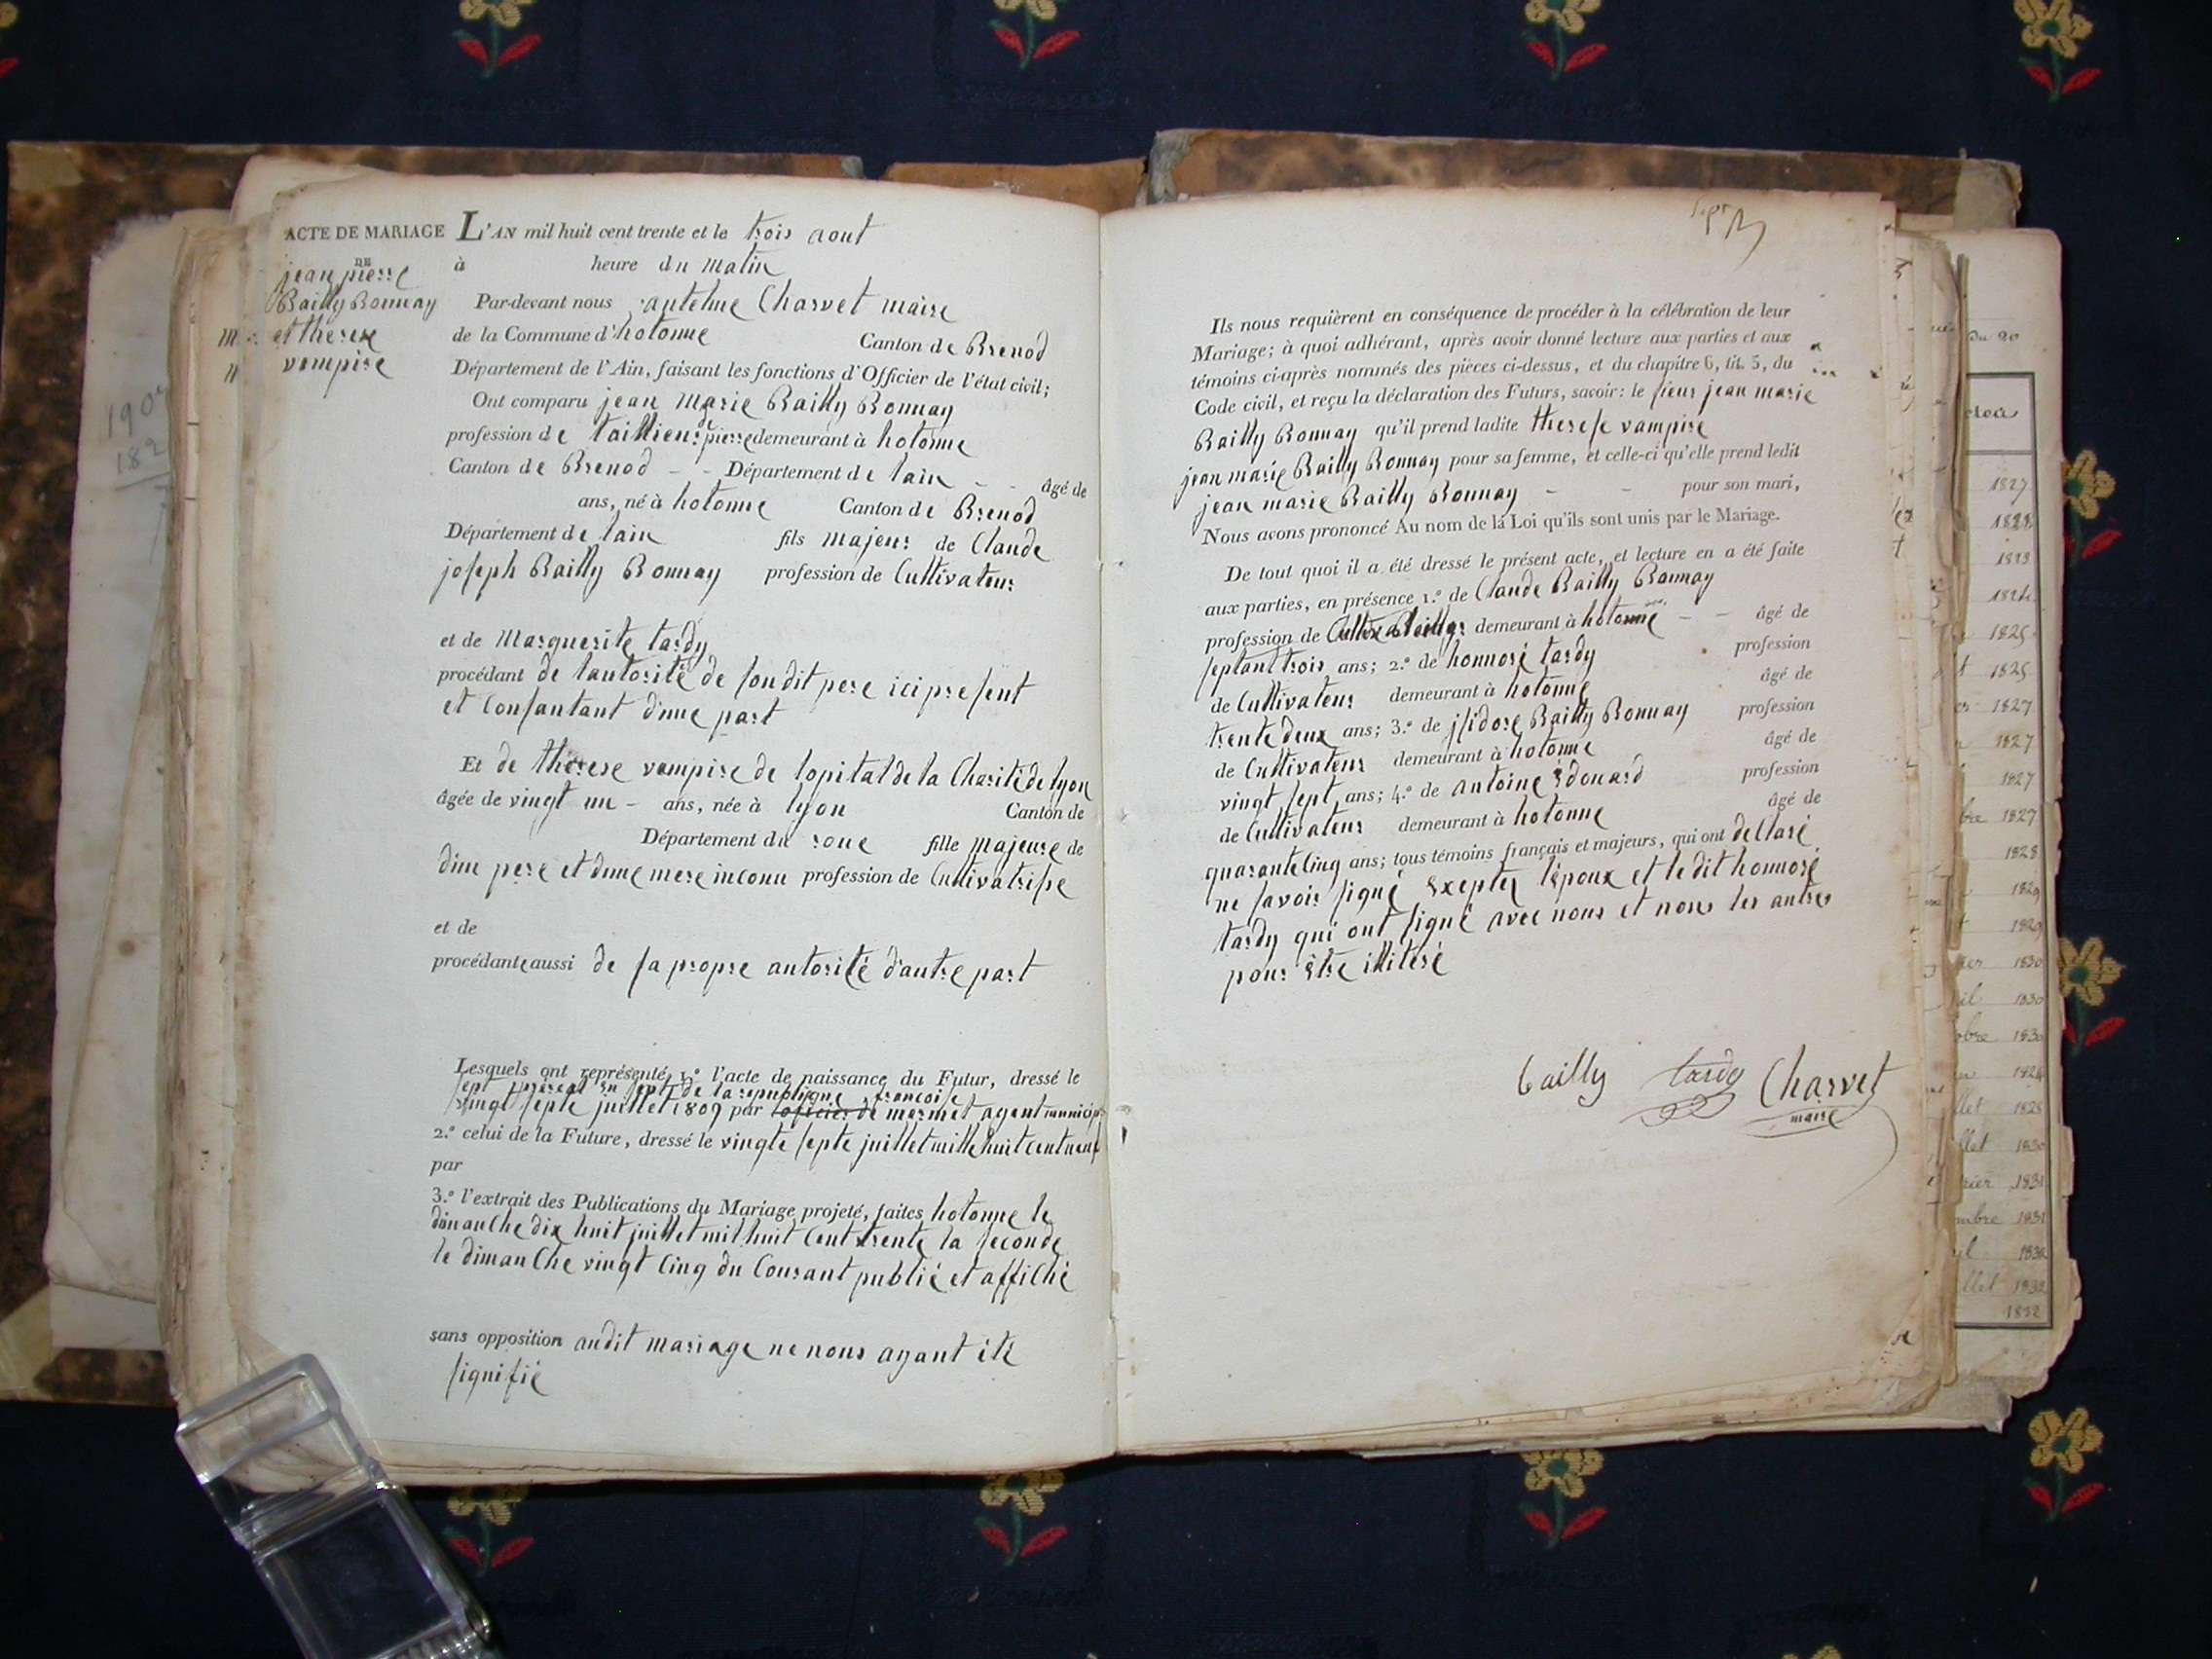 ACTE DE MARIAGE
DE
jean pierre
Bailly Bonnay
et therese
vempire
L'AN mil huit cent trente et le trois aout
à heure du matin
Par-devant nous antelme Charvet maire
de la Commune d'hotonne Canton de Brenod
Département de l'Ain, faisant les fonctions d'Officier de l'état civil;
Ont comparu jean Marie Bailly Bonnay
profession de tailleur de pierre demeurant à hotonne
Canton de Brenod - - Département de lain - - âgé de
ans, né à hotonne Canton de Brenod
Département de lain fils majeur de Claude
joseph Bailly Bonnay profession de Cultivateur
et de Marguerite tardy
procédant de lautorité de son dit pere ici present
et Consantant dune part
Et de therese vempire de lopital de la Charité de lyon
âgée de vingt un - ans, née à lyon Canton de
Département du rone fille majeure de
dun pere et dune mere inconu profession de Cultivatrise
et de
procédante aussi de sa propre autorité d'autre part
Lesquels ont représenté 1.º l'acte de naissance du Futur, dressé le
sept prereal en sept de la republique francoise
vingt septe juillet 1809 par loficier de mermet agent municip
2.º celui de la Future, dressé le vingte septe juillet mille huit cent neuf
par
3.º l'extrait des Publications du Mariage projeté, faites hotonne le
dimanche dix huit juillet mil huit Cent trente la seconde
le dimanche vingt Cinq du Courant publié et affiché
sans opposition audit mariage ne nous ayant été
signifié
Ils nous requièrent en conséquence de procéder à la célébration de leur
Mariage; à quoi adhérant, après avoir donné lecture aux parties et aux
témoins ci-après nommés des pièces ci-dessus, et du chapitre 6, tit. 5, du
Code civil, et reçu la déclaration des Futurs, savoir: le sieur jean marie
Bailly Bonnay qu'il prend ladite therese vampire
jean marie Bailly Bonnay pour sa femme, et celle-ci qu'elle prend ledit
jean marie Bailly Bonnay - - pour son mari,
Nous avons prononcé Au nom de la Loi qu'ils sont unis par le Mariage.
De tout quoi il a été dressé le présent acte, et lecture en a été faite
aux parties, en présence 1.º de Claude Bailly Bonnay
profession de demeurant à hotonne - - âgé de
septant trois ans; 2.º de honnoré tardy profession
de Cultivateur demeurant à hotonne âgé de
trente deux ans; 3.º de jsidore Bailly Bonnay profession
de Cultivateur demeurant à hotonne âgé de
vingt sept ans; 4.º de antoine Edouard profession
de Cultivateur demeurant à hotonne âgé de
quarante Cinq ans; tous témoins français et majeurs, qui ont declaré
ne savoir signé exepter lépoux et le dit honnoré
tardy qui ont signé avec nous et nons les autres
pour être illiteré
bailly tardy Charvet
maire
1827
1828
1825
1825
1827
1827
1827
bre 1827
1828
1829
1829
1830
il 1830
obre 1830
1828
llet 1830
rier 1831
mbre 1831
llet 1832
1832